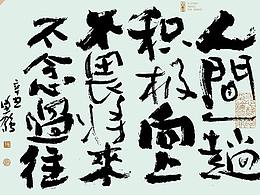 人間一趟
積极向上
不畏将来
不念過往
辛丑